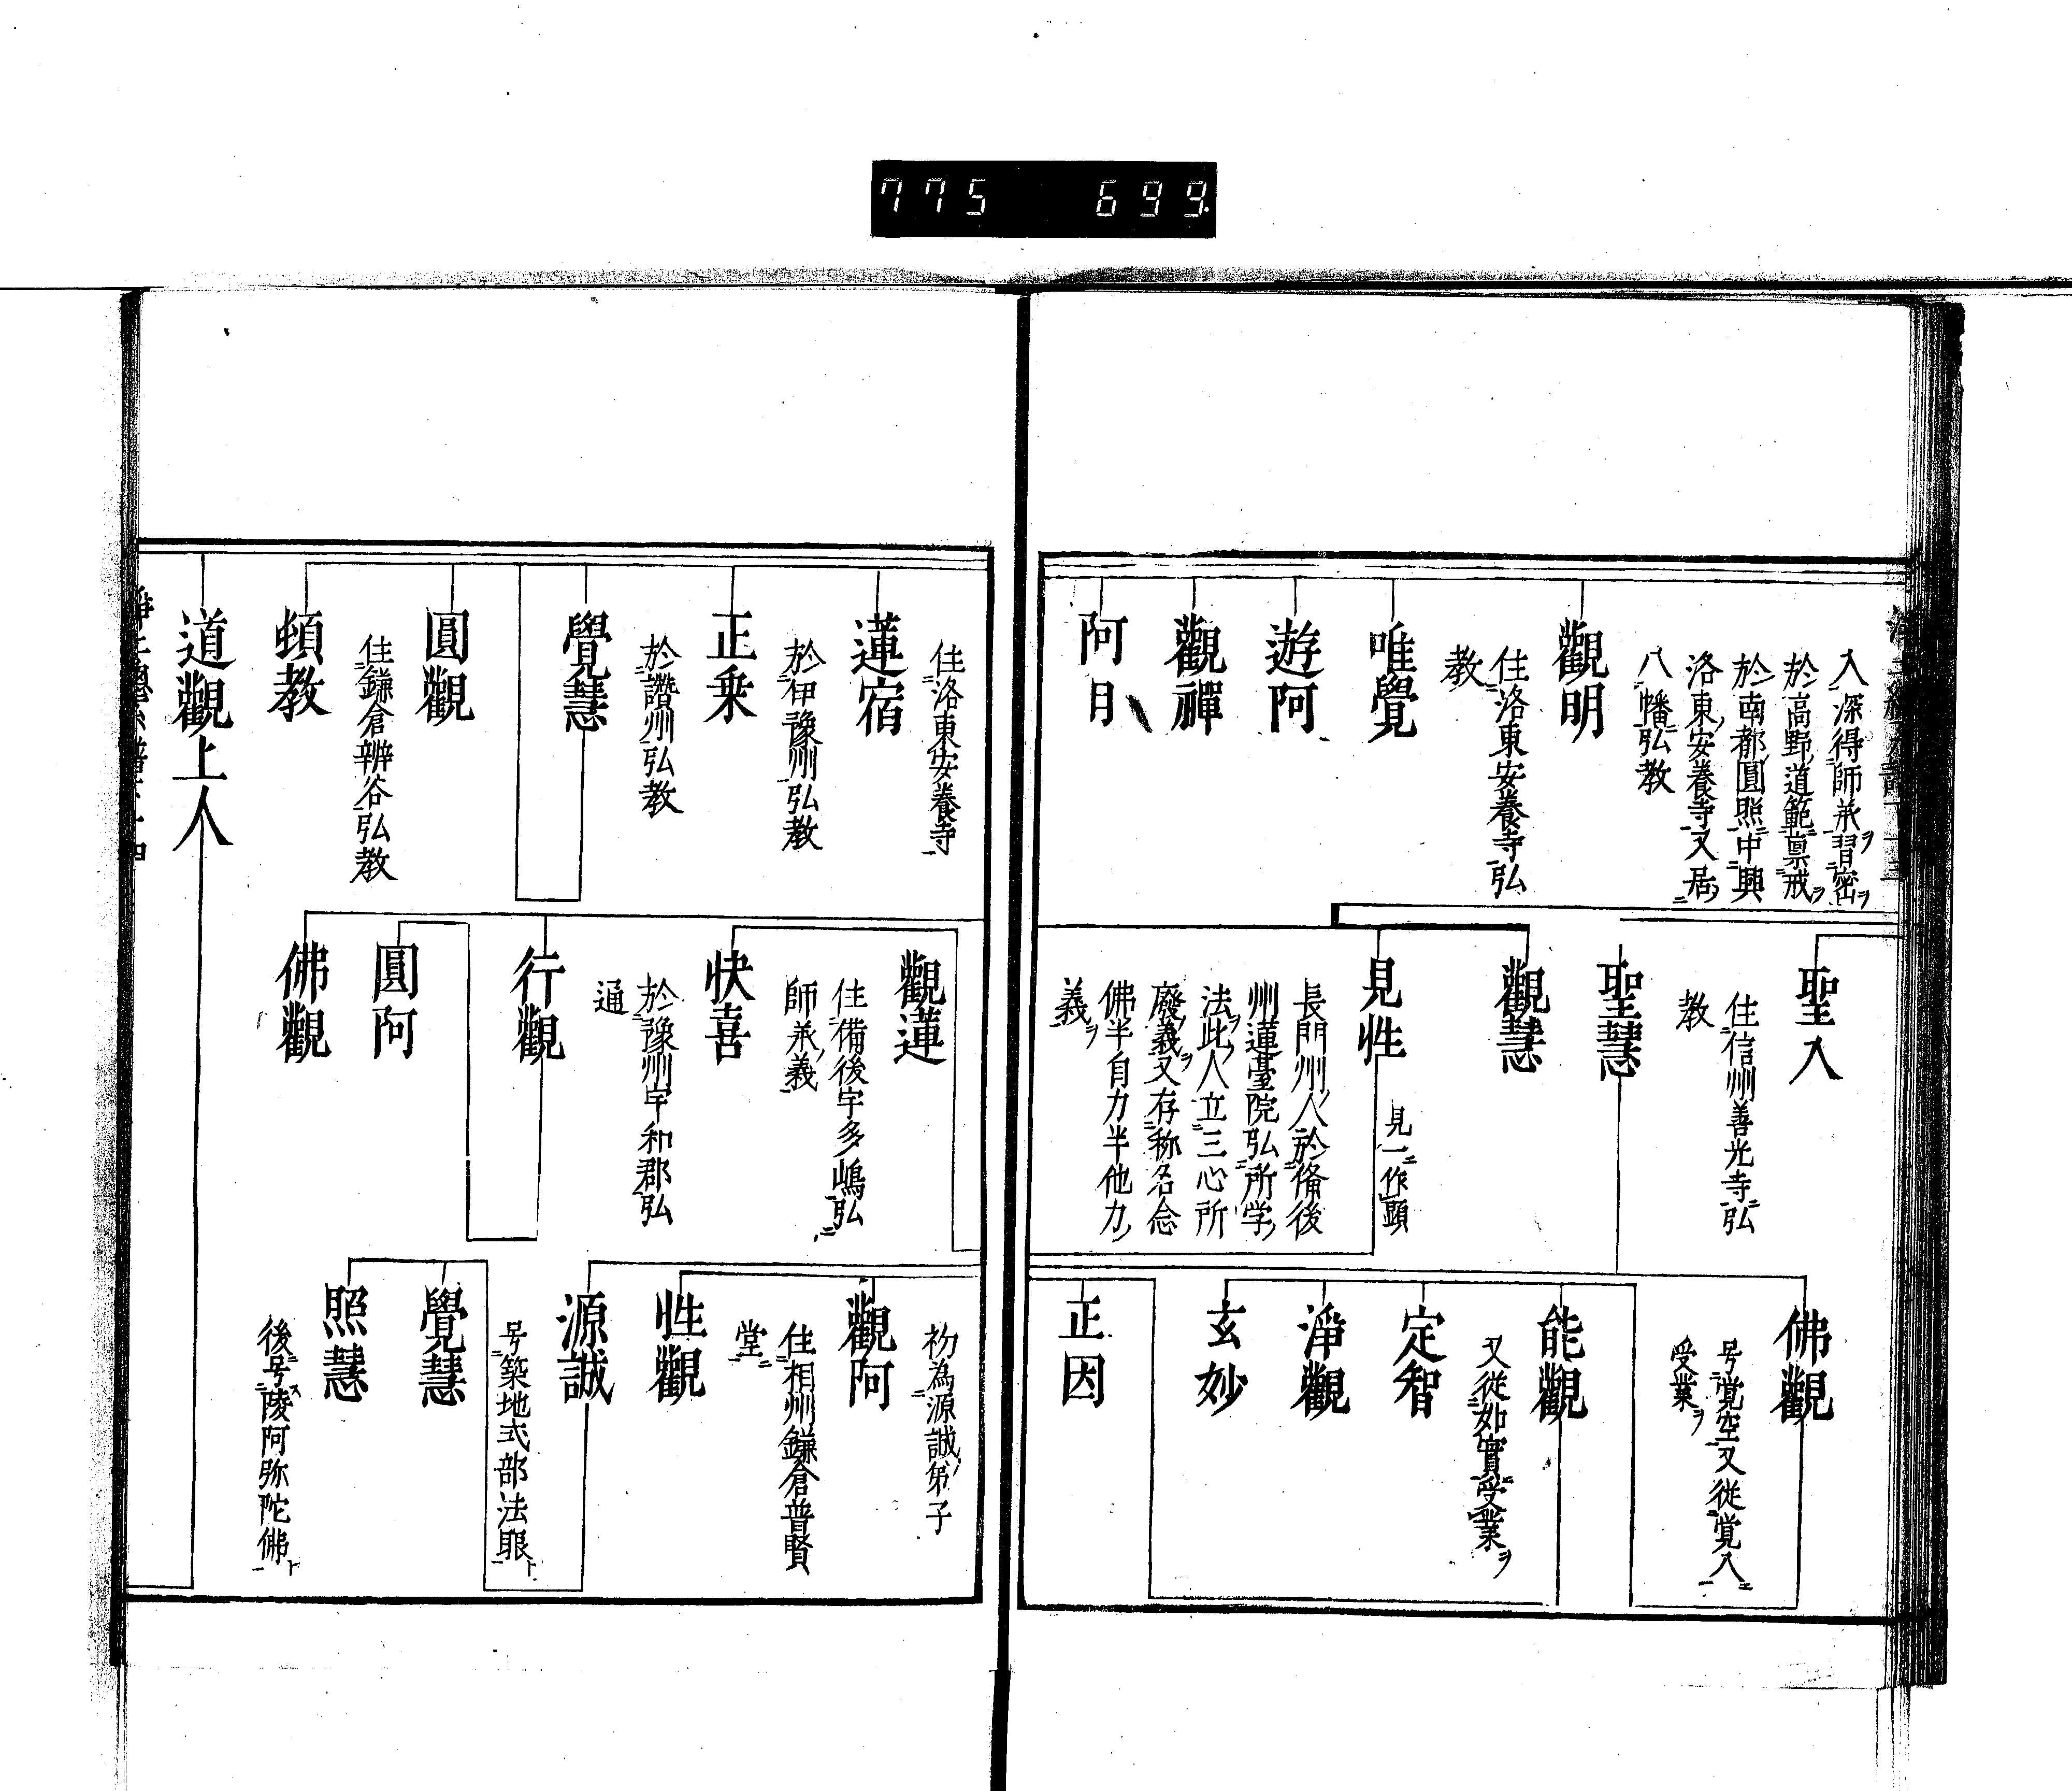 775 699.
入深得師承ヲ習密ヲ
於高野道範ニ禀戒ヲ
於南都圓照ニ中興
洛東安養寺又居ノ
八幡ニ弘教
觀明
住洛東安養寺弘
教
唯覺
遊阿
觀禪
阿月
聖入
住信州善光寺ニ弘
教
聖慧
觀慧
見性
見一ニ作顕
長門州ノ人於備後
州蓮臺院弘所学ノ
法ヲ此ノ人立三心所
廢ノ義ヲ又存称名念
佛半自力半他力ノ
義ヲ
佛觀
号覚空又従覚入ニ
受業ヲ
能觀
又従如實ニ受業ヲ
定智
淨觀
玄妙
正因
住洛東安養寺
蓮宿
於伊豫州弘教
正乗
於讚州弘教
覺慧
圓觀
住鎌倉辨谷弘教
頓教
道觀上人
觀蓮
住備後宇多嶋弘ニ
師承ノ義
快喜
於豫州宇和郡弘
通
行觀
圓阿
佛觀
初為源誠ノ弟子
觀阿
住相州鎌倉普賢
堂ニ
性觀
源誠
号築地式部法眼ト
覺慧
照慧
後ニ号ス陵阿弥陀佛ト